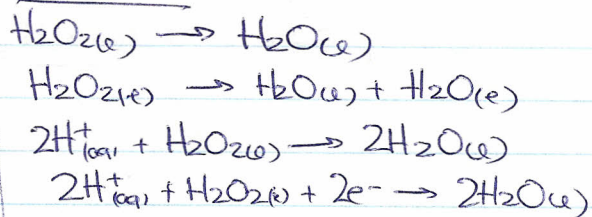 H₂O₂(l) → H₂O(l)
H₂O₂(l) → H₂O(l) + H₂O(l)
2H⁺(aq) + H₂O₂(l) → 2H₂O(l)
2H⁺(aq) + H₂O₂(l) + 2e⁻ → 2H₂O(l)